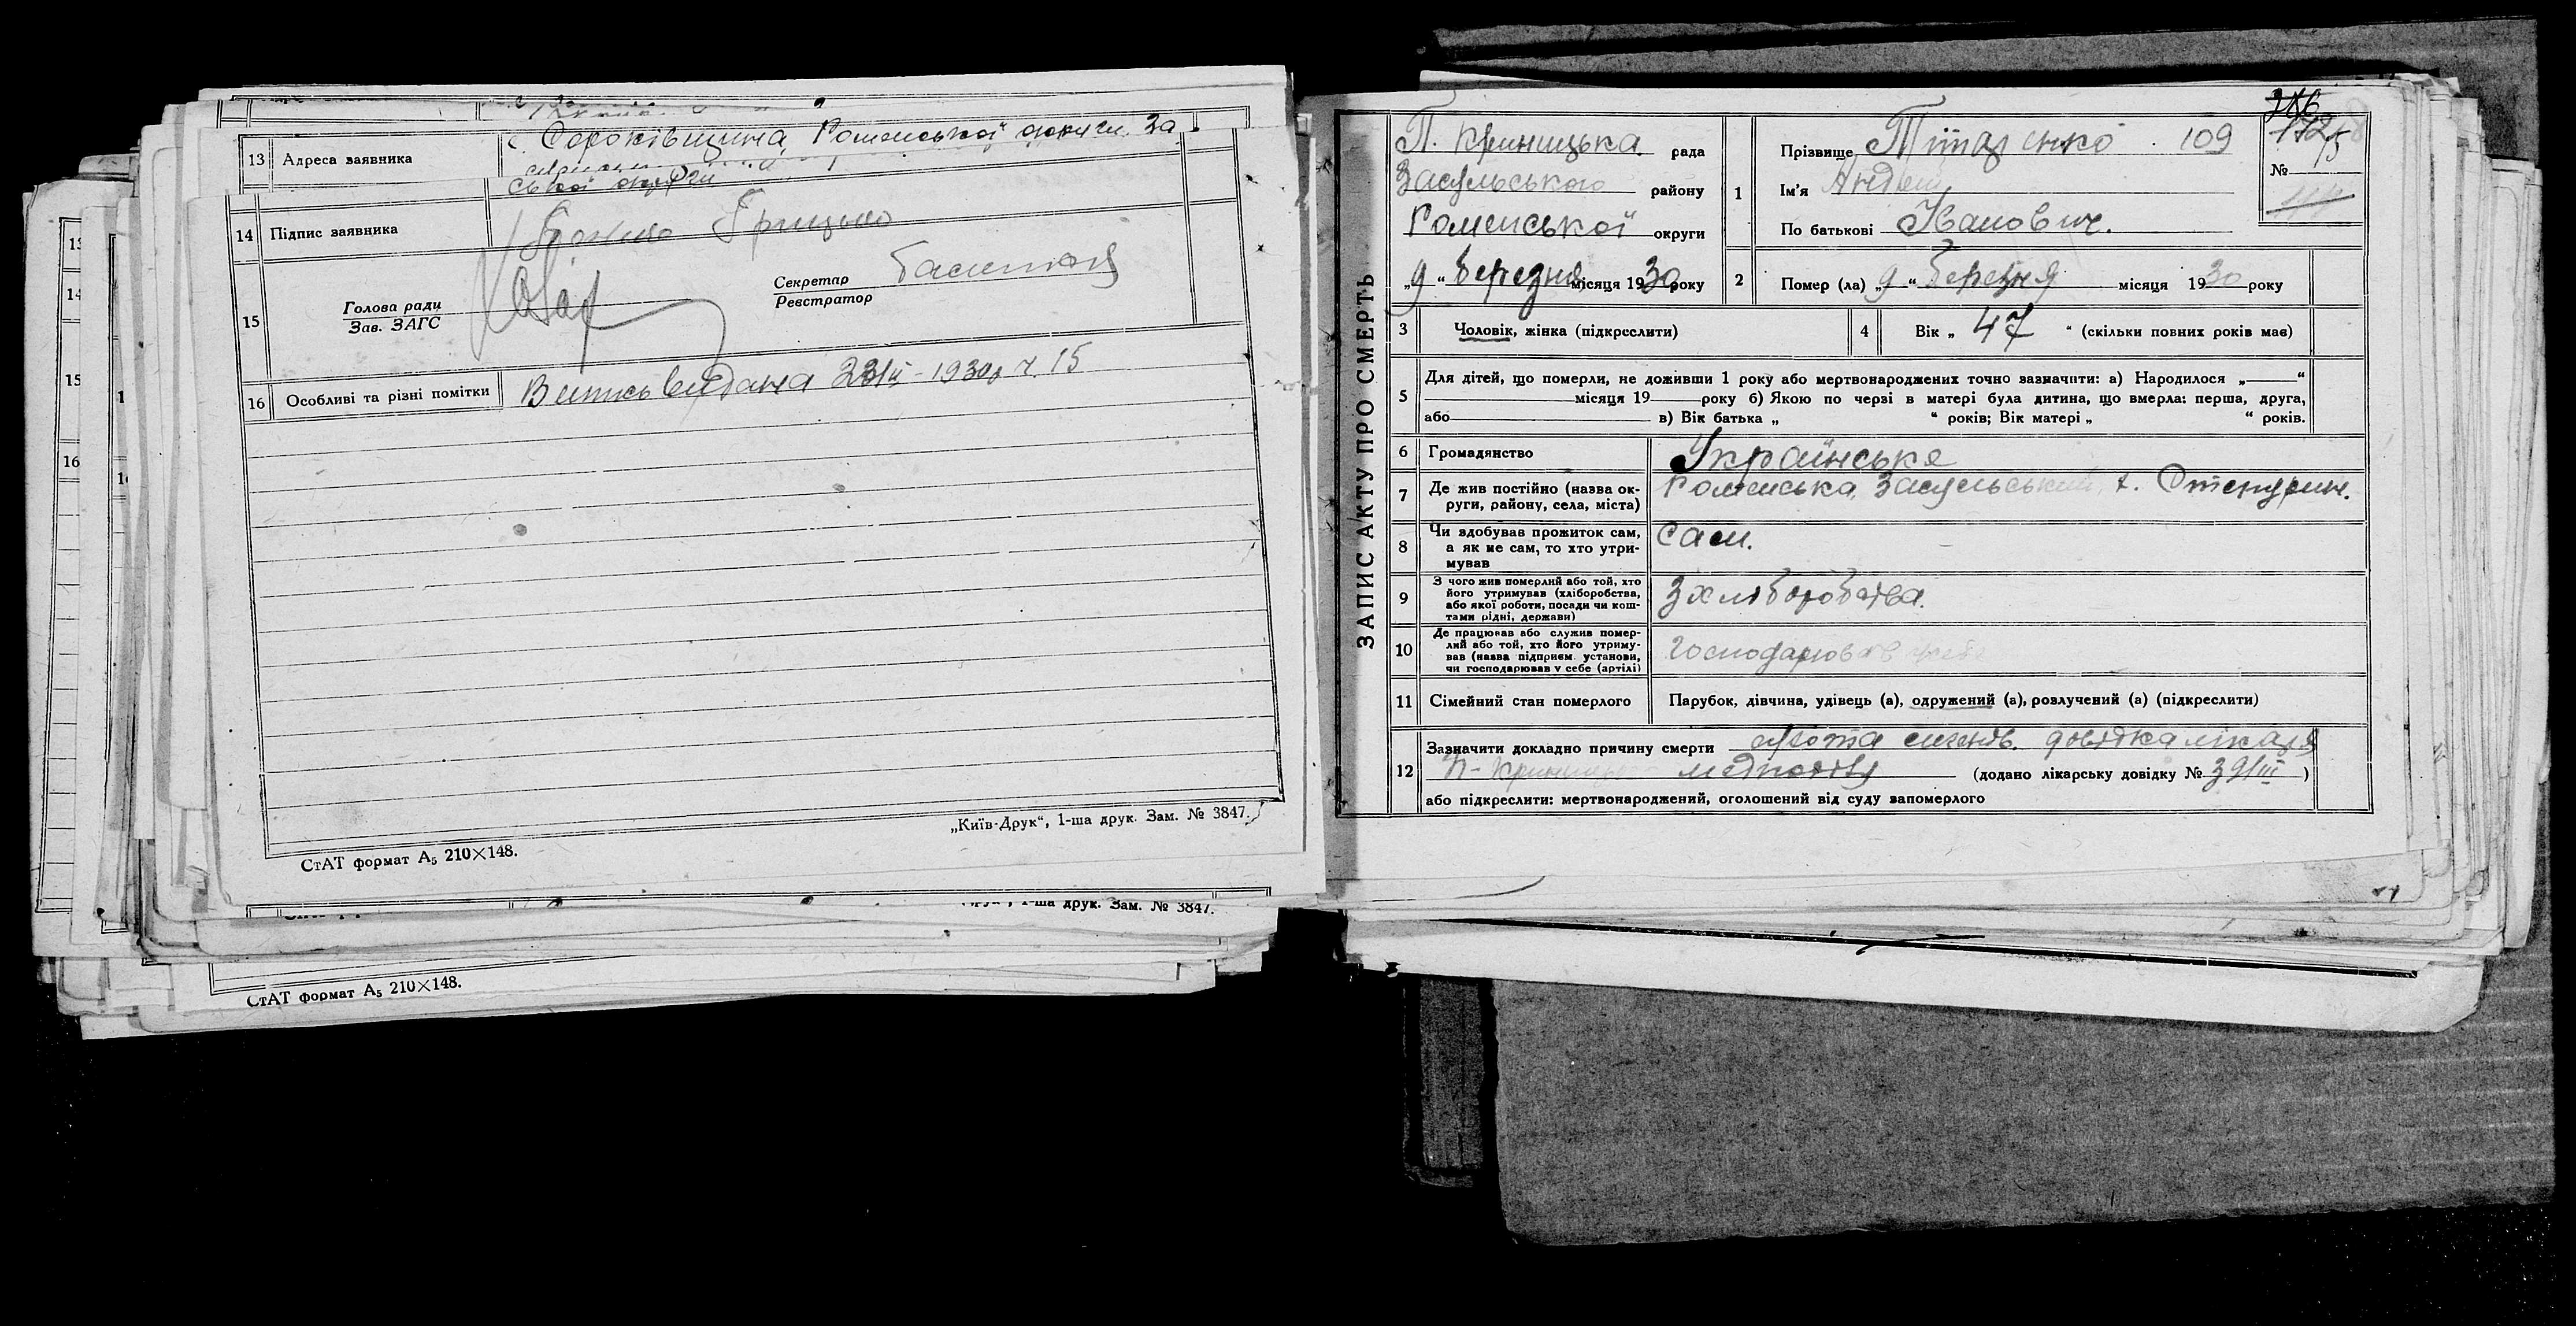 13 Адреса заявника с. Сороківщина, Роменської округи. За
ської округи
14 Підпис заявника Грицько
15 Голова ради
Зав. ЗАГС
Секретар
Реєстратор
16 Особливі та різні помітки Випись видана 1930р ч. 15
„Київ-Друк“, 1-ша друк. Зам. № 3847.
СтАТ формат А₅ 210×148.
1-ша друк. Зам. № 3847.
СтАТ формат А₅ 210×148.
ЗАПИС АКТУ ПРО СМЕРТЬ
П. Криницька рада
Засульського району
Роменської округи
„9“ березня місяця 1930 року
1 Прізвище Тітаренко 109
Ім'я Андрій
По батькові Іванович.
№
15
2 Помер (ла) „9“ березня місяця 1930 року
3 Чоловік, жінка (підкреслити)
4 Вік „47“ (скільки повних років мав)
5 Для дітей, що померли, не доживши 1 року або мертвонароджених точно зазначити: а) Народилося „ “
місяця 19 року б) Якою по черзі в матері була дитина, що вмерла: перша, друга,
або в) Вік батька „ “ років; Вік матері „ “ років.
6 Громадянство Українське
7 Де жив постійно (назва ок-
руги, району, села, міста) Роменська, Засульський, х.
8 Чи здобував прожиток сам,
а як не сам, то хто утри-
мував Сам.
9 З чого жив померлий або той, хто
його утримував (хліборобства,
або якої роботи, посади чи кош-
тами рідні, держави) З хліборобства.
10 Де працював або служив помер-
лий або той, хто його утриму-
вав (назва підприєм. установи,
чи господарював у себе (артілі) господарював
11 Сімейний стан померлого Парубок, дівчина, удівець (а), одружений (а), розлучений (а) (підкреслити)
12 Зазначити докладно причину смерти довідка лікаря
П-Криниць (додано лікарську довідку № 39/III)
або підкреслити: мертвонароджений, оголошений від суду запомерлого